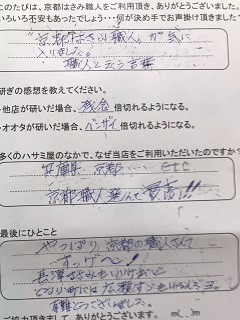 このたびは、京都はさみ職人をご利用頂き、ありがとうございました。
いろいろ不安もあったでしょう・・・何が決め手でお声掛け頂きました
"京都はさみ職人"が気に
入りました。
職人と云う言葉
研ぎの感想を教えてください。
・他店が研いだ場合、残念 倍切れるようになる。
・オオタが研いだ場合、バンザイ 倍切れるようになる。
多くのハサミ屋のなかで、なぜ当店をご利用いただいたのですか?
兵庫県 京都 ・・・・ etc
京都職人選んで最高!!
最後にひとこと
やっぱり、京都の職人さんて
すっげ〜!
長澤はさみもいいけれど
ありがとうございました。
ご協力頂きまして、ありがとうございます。 m(__)m